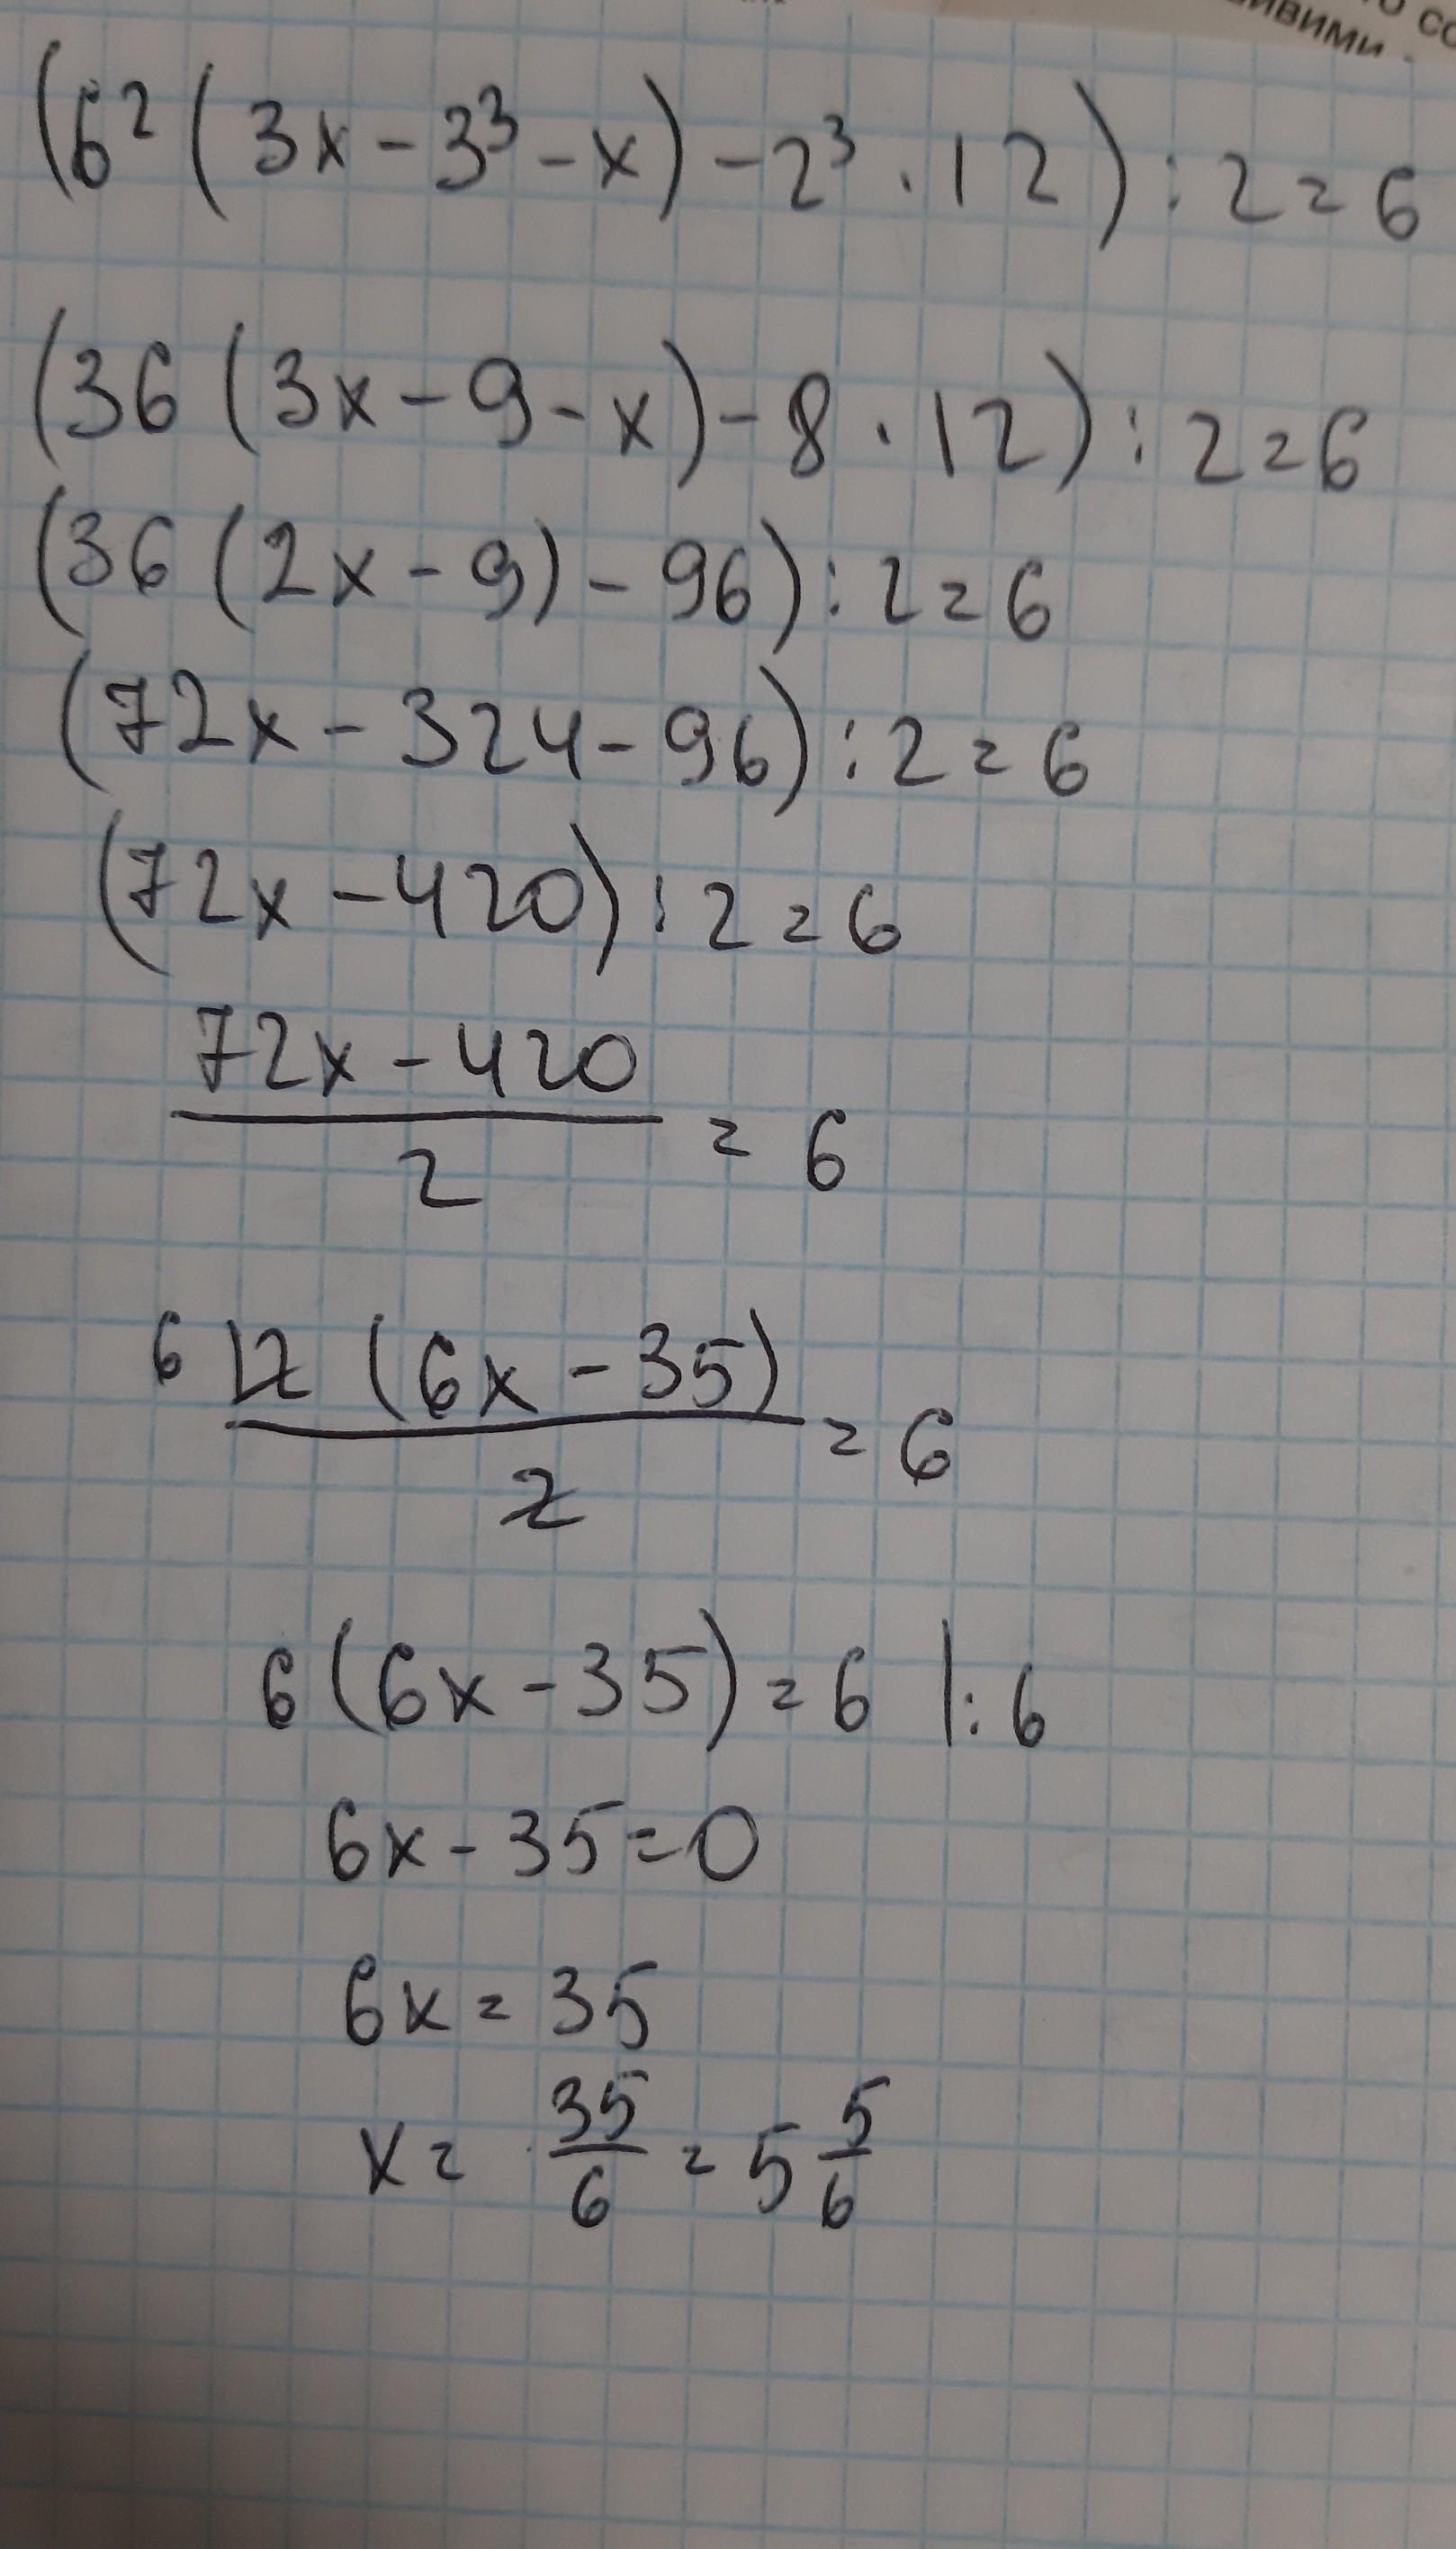 ивими.
(6² (3x - 3³ - x) - 2³ · 12) : 2 = 6
(36 (3x - 9 - x) - 8 · 12) : 2 = 6
(36 (2x - 9) - 96) : 2 = 6
(72x - 324 - 96) : 2 = 6
(72x - 420) : 2 = 6
72x - 420
2
= 6
6 12 (6x - 35)
2
= 6
6 (6x - 35) = 6 |: 6
6x - 35 = 0
6x = 35
x = 35/6 = 5 5/6